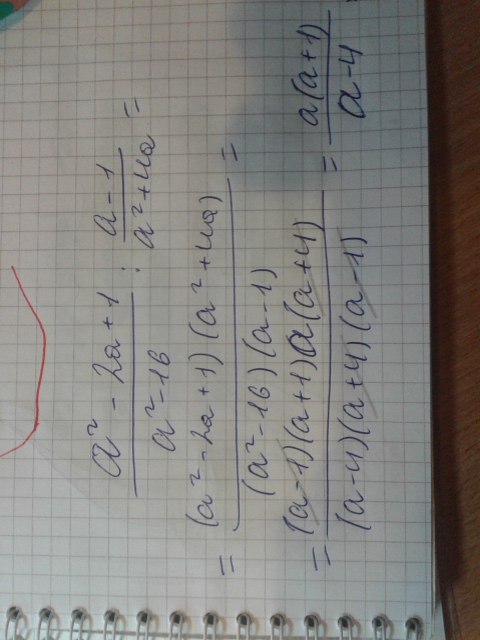 (a² - 2a + 1)/(a² - 16) : (a - 1)/(a² + 4a) =
= ((a² - 2a + 1)(a² + 4a))/((a² - 16)(a - 1)) =
= ((a - 1)(a + 1)a(a + 4))/((a - 4)(a + 4)(a - 1)) = (a(a + 1))/(a - 4)